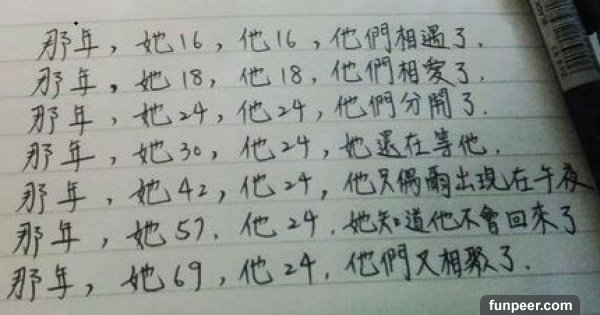 那年，她16，他16，他們相遇了.
那年，她18，他18，他們相愛了.
那年，她24，他24，他們分開了.
那年，她30，他24，她還在等他.
那年，她42，他24，他只偶爾出現在午夜
那年，她57，他24，她知道他不會回來了
那年，她69，他24，他們又相聚了.
funpeer.com